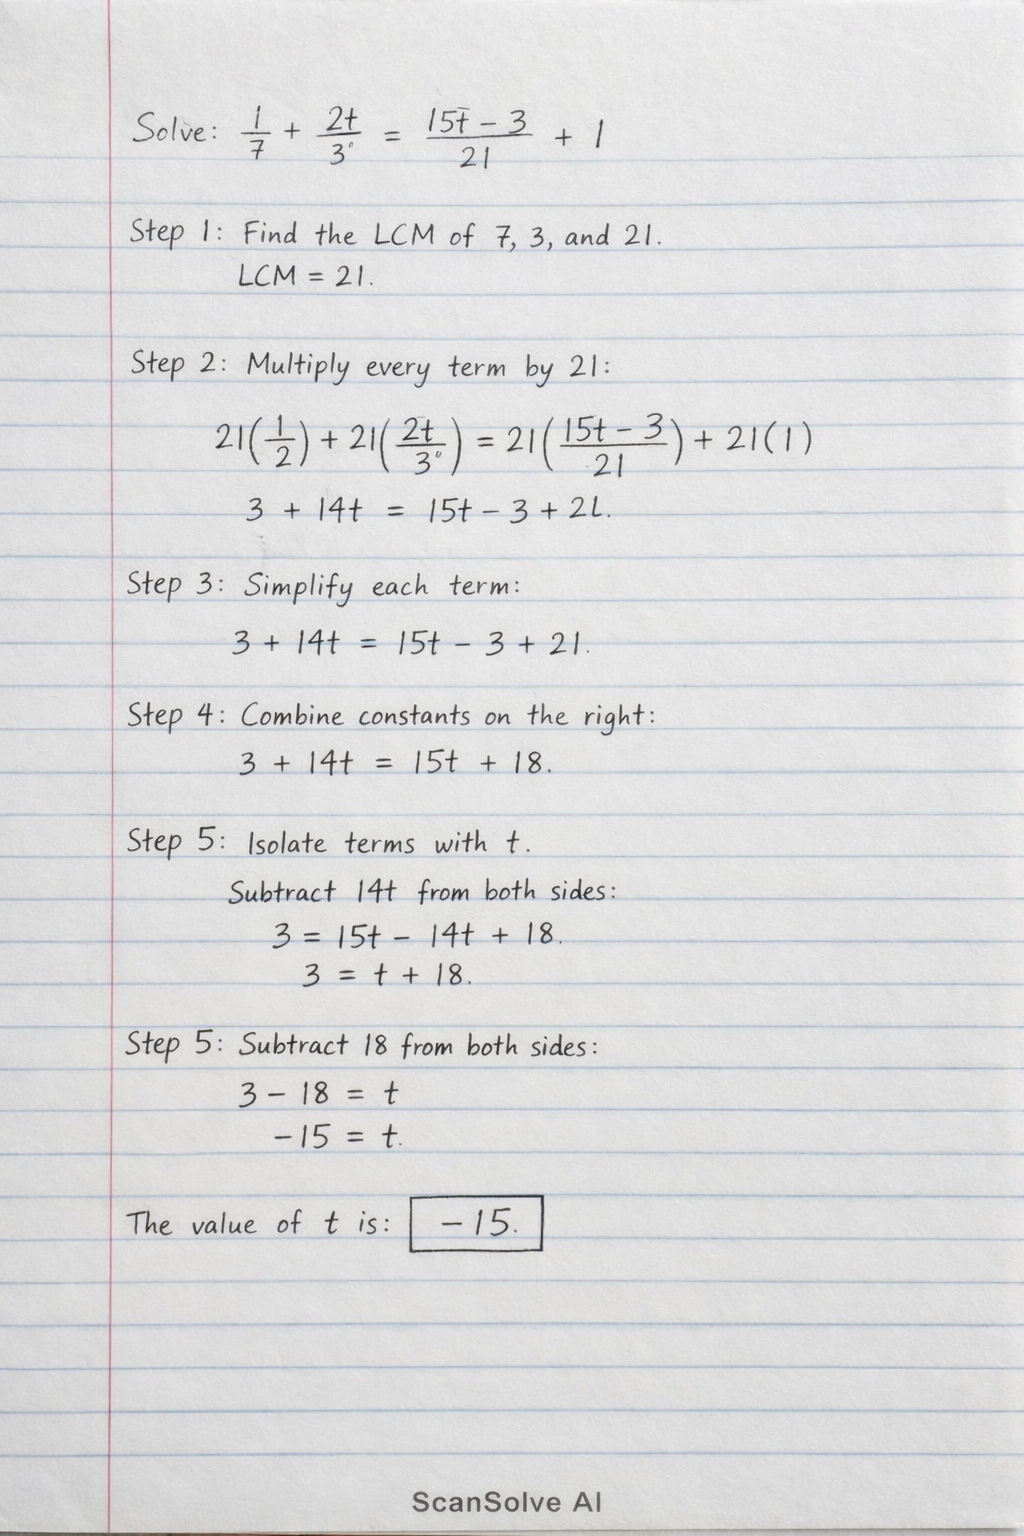 Solve: 1/7 + 2t/3 = (15t - 3)/21 + 1
Step 1: Find the LCM of 7, 3, and 21.
LCM = 21.
Step 2: Multiply every term by 21:
21(1/2) + 21(2t/3) = 21((15t - 3)/21) + 21(1)
3 + 14t = 15t - 3 + 21.
Step 3: Simplify each term:
3 + 14t = 15t - 3 + 21.
Step 4: Combine constants on the right:
3 + 14t = 15t + 18.
Step 5: Isolate terms with t.
Subtract 14t from both sides:
3 = 15t - 14t + 18.
3 = t + 18.
Step 5: Subtract 18 from both sides:
3 - 18 = t
-15 = t.
The value of t is: -15.
ScanSolve AI